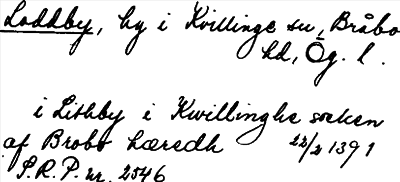 Loddby, by i Kvillinge sn, Bråbo
hd, Ög. l.
i Lithby i Kwillinghe soken
af Brobo hæredh 22/2 1391
S.R.P. nr. 2546